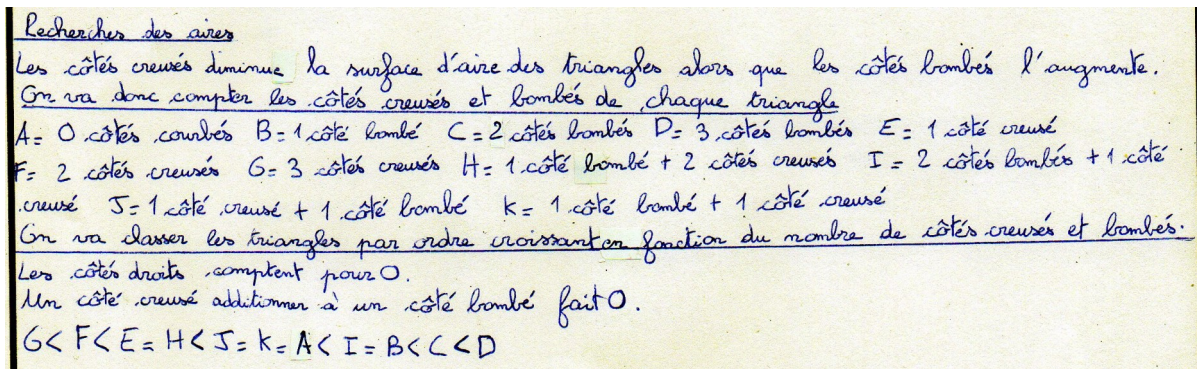 Recherches des aires
Les côtés creusés diminue la surface d'aire des triangles alors que les côtés bombés l'augmente.
On va donc compter les côtés creusés et bombés de chaque triangle
A= 0 côtés courbés B=1 côté bombé C=2 côtés bombés D= 3 côtés bombés E= 1 côté creusé
F= 2 côtés creusés G= 3 côtés creusés H= 1 côté bombé + 2 côtés creusés I = 2 côtés bombés + 1 côté
creusé J=1 côté creusé + 1 côté bombé K= 1 côté bombé + 1 côté creusé
On va classer les triangles par ordre croissant en fonction du nombre de côtés creusés et bombés.
Les côtés droits comptent pour 0.
Un côté creusé additionner à un côté bombé fait 0.
G< F< E= H< J= K= A< I= B< C< D